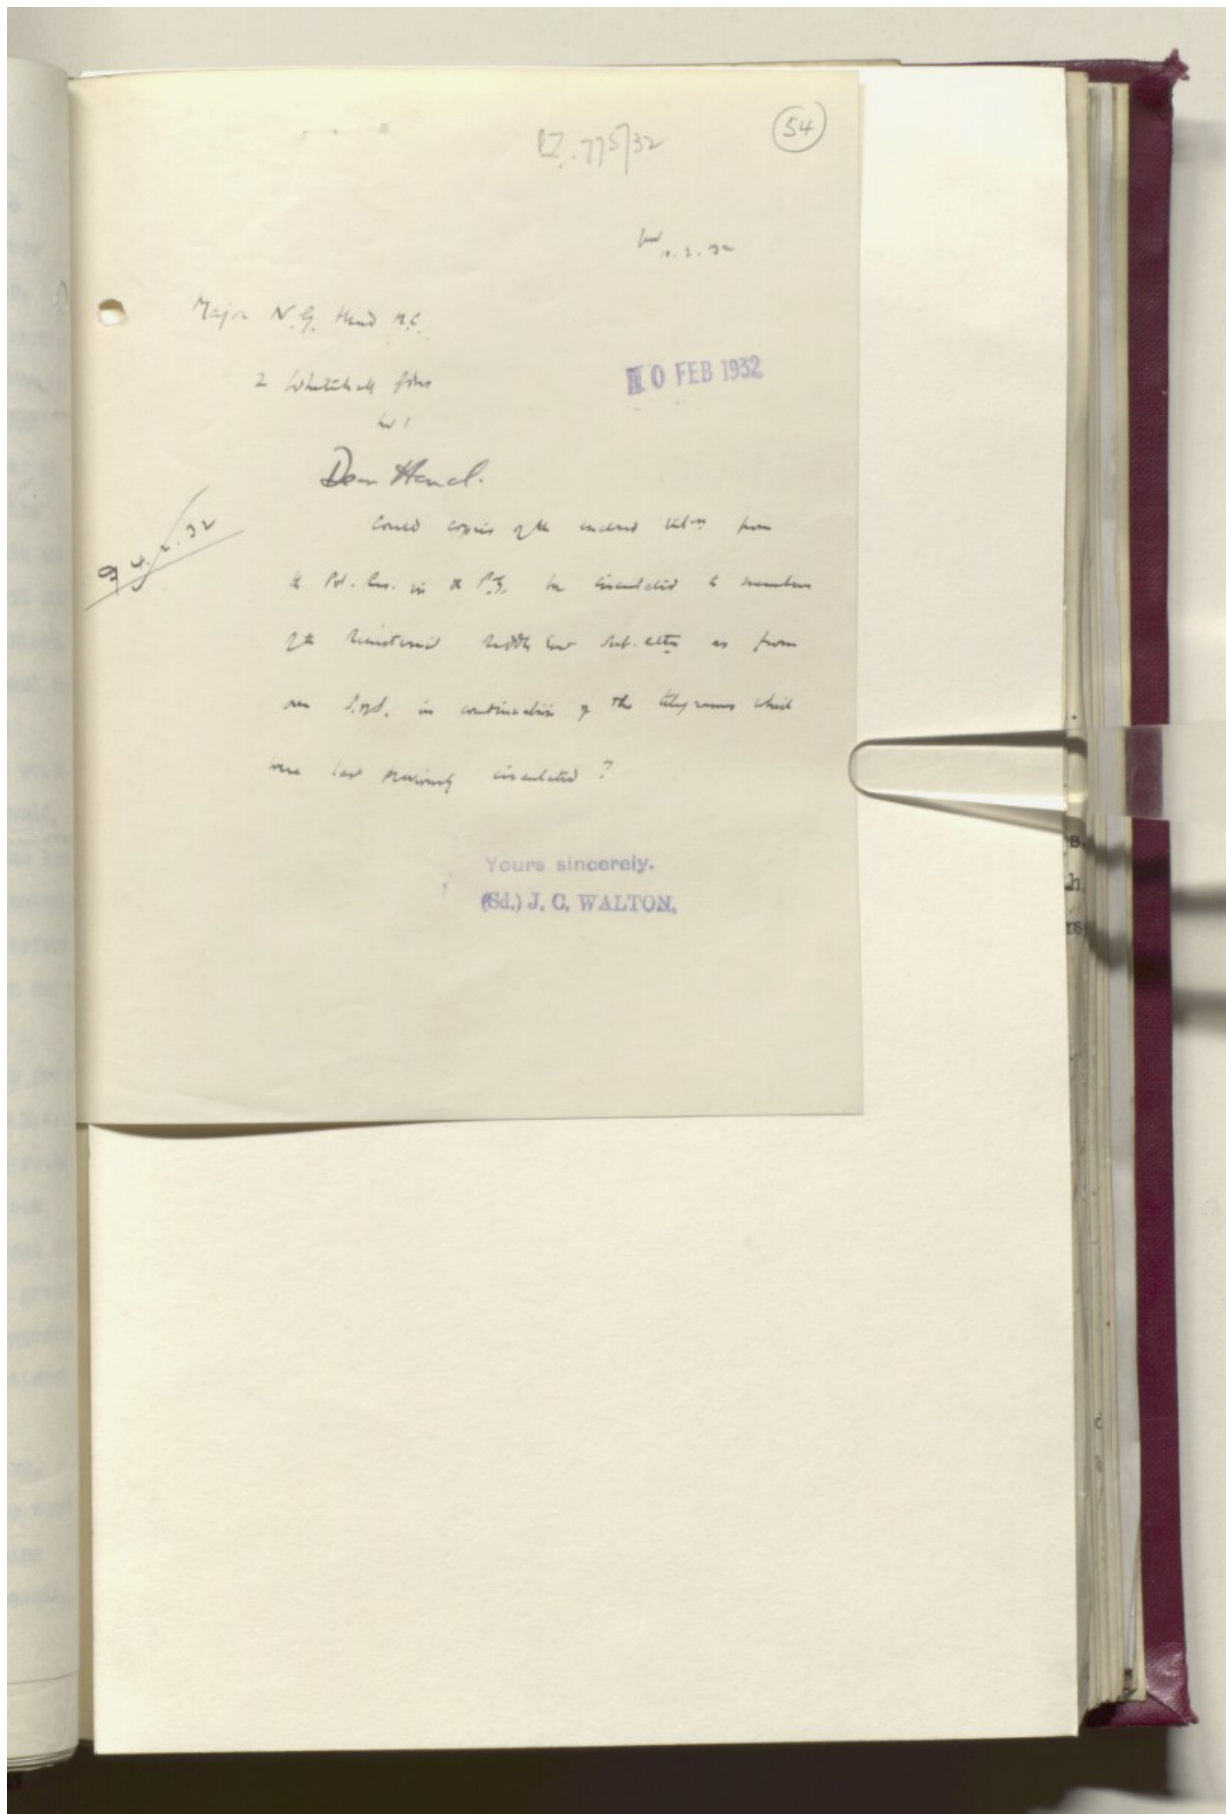 54
P.Z. 775/32
10.2.32
Major N. G. Hind M.C.
2 Whitehall Gdns
SW 1
10 FEB 1932
Dear Hind.
Could copies of the enclosed from
9 4.2.32
the Pol. Res. in the P.G. be circulated to members
of the Ministerial Middle East Sub-cttee as from
our S. of S. in continuation of the telegrams which
were last previously circulated ?
Yours sincerely.
(Sd.) J. C. WALTON.